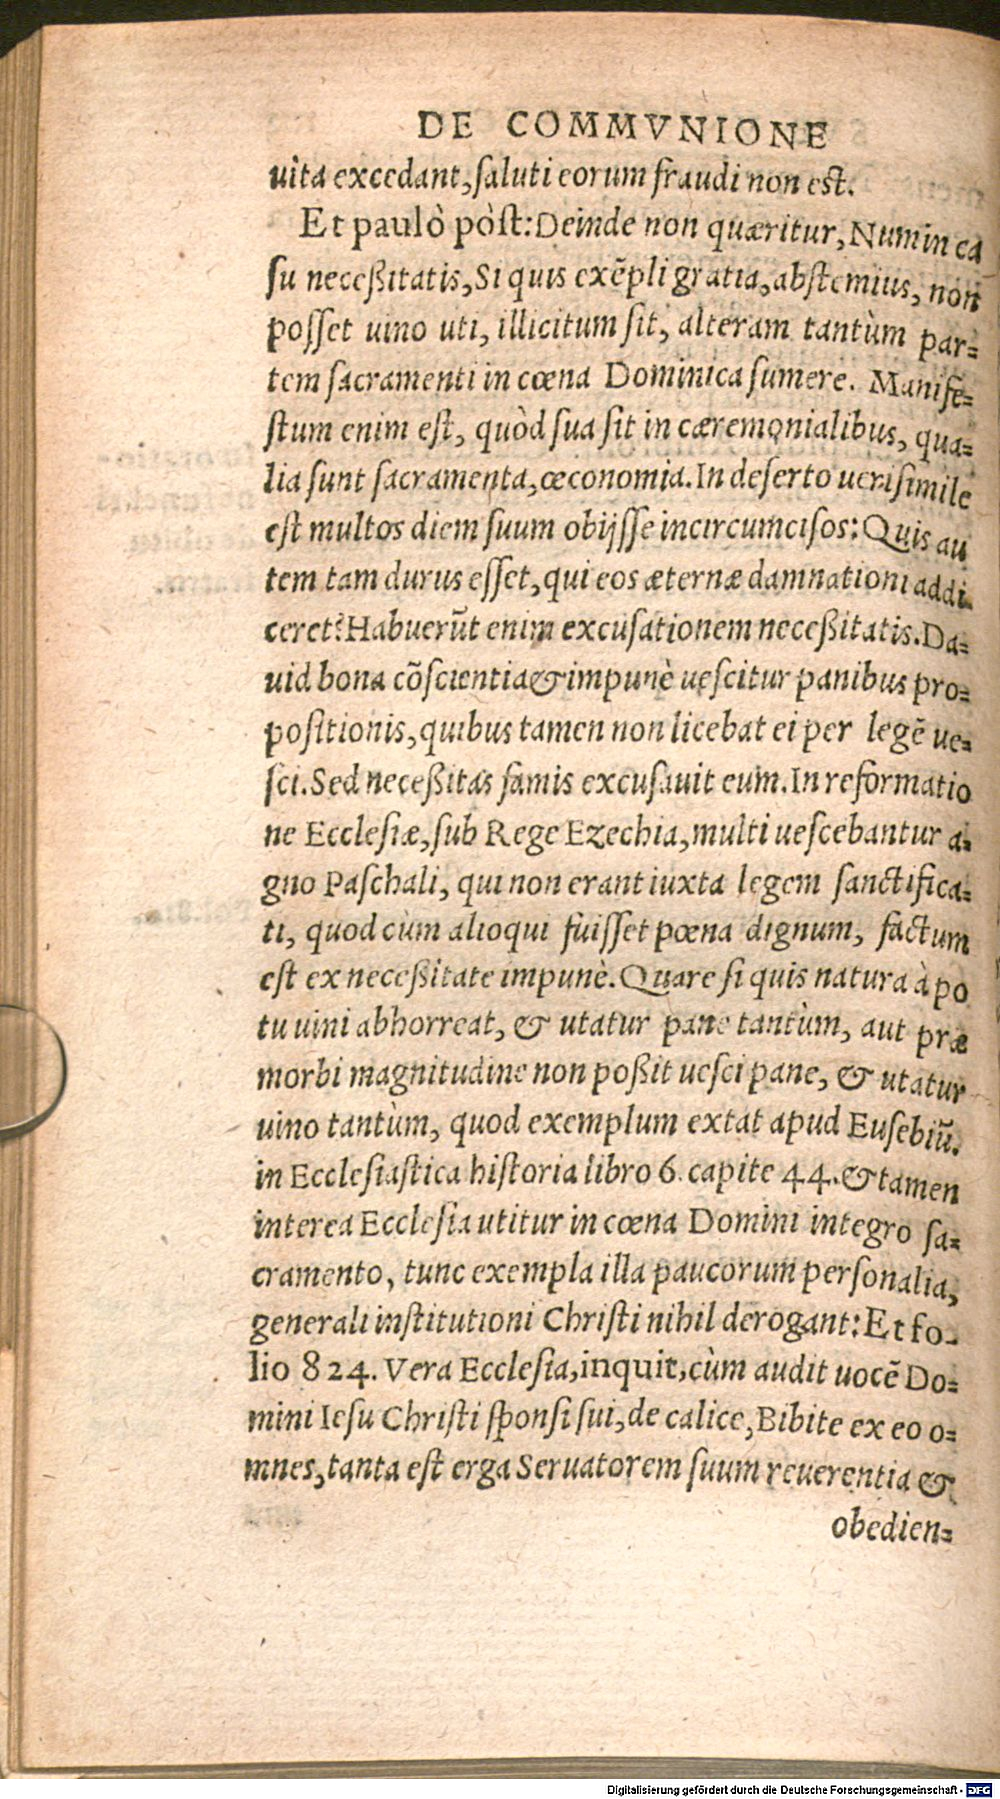 DE COMMVNIONE
uita excedant, saluti eorum fraudi non est.
Et paulò pòst: Deinde non quæritur, Num in ca
su neceßitatis, Si quis exẽpli gratia, abstemius, non
posset uino uti, illicitum sit, alteram tantùm par=
tem sacramenti in cœna Dominica sumere. Manife=
stum enim est, quòd sua sit in cæremonialibus, qua=
lia sunt sacramenta, œconomia. In deserto uerisimile
est multos diem suum obijsse incircumcisos: Quis au
tem tam durus esset, qui eos æternæ damnationi addi
ceret? Habuerũt enim excusationem neceßitatis. Da=
uid bona cõscientia & impunè uescitur panibus pro=
positionis, quibus tamen non licebat ei per legẽ ue=
sci. Sed neceßitas famis excusauit eum. In reformatio
ne Ecclesiæ, sub Rege Ezechia, multi uescebantur a=
gno Paschali, qui non erant iuxta legem sanctifica=
ti, quod cùm alioqui fuisset pœna dignum, factum
est ex neceßitate impunè. Quare si quis natura à po
tu uini abhorreat, & utatur pane tantùm, aut præ
morbi magnitudine non poßit uesci pane, & utatur
uino tantùm, quod exemplum extat apud Eusebiũ.
in Ecclesiastica historia libro 6. capite 44. & tamen
interea Ecclesia utitur in cœna Domini integro sa=
cramento, tunc exempla illa paucorum personalia,
generali institutioni Christi nihil derogant: Et fo=
lio 824. Vera Ecclesia, inquit, cùm audit uocẽ Do=
mini Iesu Christi sponsi sui, de calice, Bibite ex eo o=
mnes, tanta est erga Seruatorem suum reuerentia &
obedien=
Digitalisierung gefördert durch die Deutsche Forschungsgemeinschaft - DFG